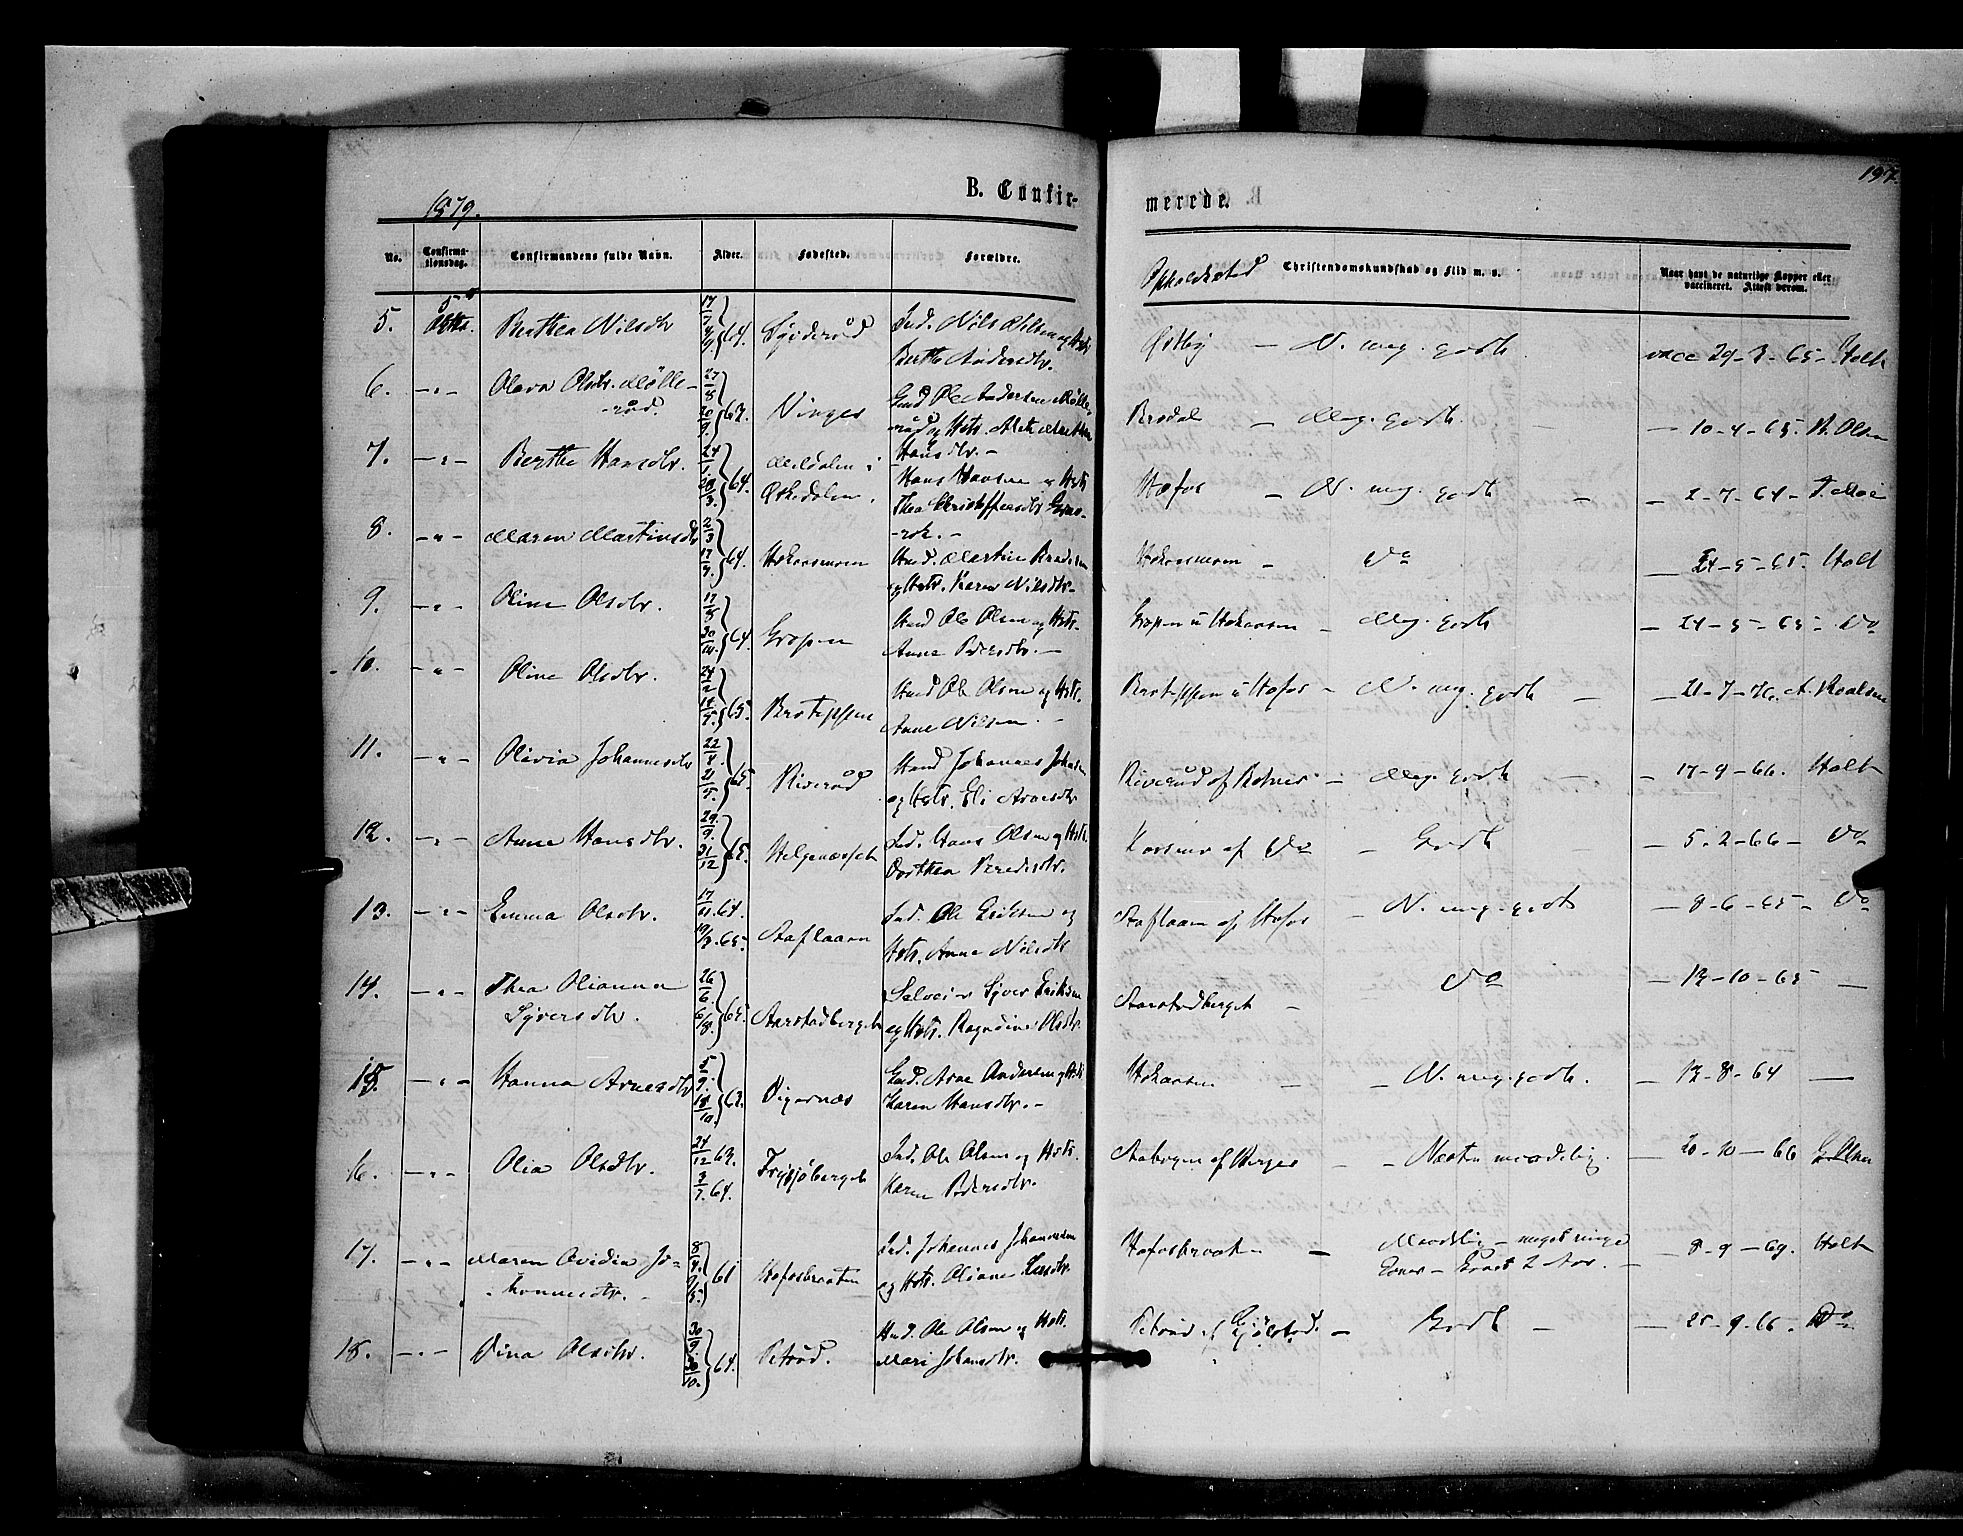 197.
B. Confir-
merede.
1879.
No.
Confirma-
tionsdag.
Confirmandens fulde Navn.
Alder.
Fødested.
Forældre.
Opholdssted
Christendomskundskab og Flid m. m.
Naar havt de naturlige Kopper eller
vaccineret. Attest derom.
5. Berthea Nilsdtr 17/7 64. Ind. Nils Nilsen og Hstr
Berthe Andersdtr.
Østby – N. meg. godt vacc 29-3-65- Holt
6. -„- Olava Olsdtr. Mølle-
-rød. 27/8 20/9 63. Vinger Gmd Ole Andersen Mølle-
rød og Hstr.
Hansdtr. -
Brødal – Meg. godt. – 10-4-65. N. Olsen
7. -„- Berthe Hansdtr. 24/1 28/3 64. Hans Hansen og Hstr
Thea Christoffersdtr
-rok. -
Høfos – N. meg. godt – 2-7-64- T. Moe
8. -„- Maren Martinsdtr 2/3 17/7. 64. Hokaasmoen Hmd. Martin
og Hstr. Karen Nilsdtr.
Hokaasmoen – Do – 24-5-65- Holt
9. -„- Oline Olsdtr. 17/8 30/10. 64. Gropen Hmd Ole Olsen og Hstr.
Anne Pedersdtr. —
Gropen u Hokaasen – Meg. godt – 24-5-65- Do
10. -„- Oline Olsdtr. 24/2 14/5. 65. Bratteppen Hmd Ole Olsen og Hstr.
Anne Nilsen -
Bratteppen u Høfos – N. meg. godt – 21-7-76. A. Roalsen
11. -„- Olavia Johannesdtr 22/4 21/5. 65. Riverød Hmd Johannes Johansen
og Hstr. Eli Arnesdtr.
Riverud af – Meg. godt – 17-9-66. Holt
12. -„- Anne Hansdtr. 29./9. 31/12 65. Helgenæsset Ind. Hans Olsen og Hstr.
Dorthea Pedersdtr.
af Do – Godt – 5-2-66- Do
13. -„- Emma Olsdtr. 17/11. 64. 19/3. 65. Aaflaaen Ind. Ole Eriksen og
Hstr. Anne Nilsdtr
Aaflaaen af Høfos – N. meg. godt – 8-6-65- Do
14. -„- Thea Olianna
Syversdtr. 26/6. 6/8. 64. Aarstadberget Selveier Syver Eriksen
og Hstr. Ragndine Olsdtr.
Aarstadberget – Do – 12-10-65 —
15. -„- Hanna Arnesdtr 5/9. 18/10. 63. Digernæs Gmd. Arne Andersen og Hstr
Karen Hansdtr. -
Hokaasen – N. meg. godt. – 12-8-64 —
16. -„- Olia Olsdtr. 24/12 63. 3/7. 64. Frysjøberget Ind. Ole Olsen og Hstr.
Karen Pedersdtr.
Aabogen af Berger – Næsten maadelig. – 20-10-66 G. Olsen
17. -„- Maren Ovidia Jo-
hannesdtr. - 8/4. 61 Høfosbraaten Ind. Johannes Johannesen
og Hstr. Oliane Larsdtr.
Høfosbraaten – Maadelig – meget ringe
Evner – 2 Aar. – 8-9-69. Holt
18. -„- Dina Olsdtr. 30/9. 30/10. 64. Petrød. Hmd. Ole Olsen og Hstr.
Mari Johansdtr.
Petrud af Gjølstad. – Godt – 25-9-66. Do